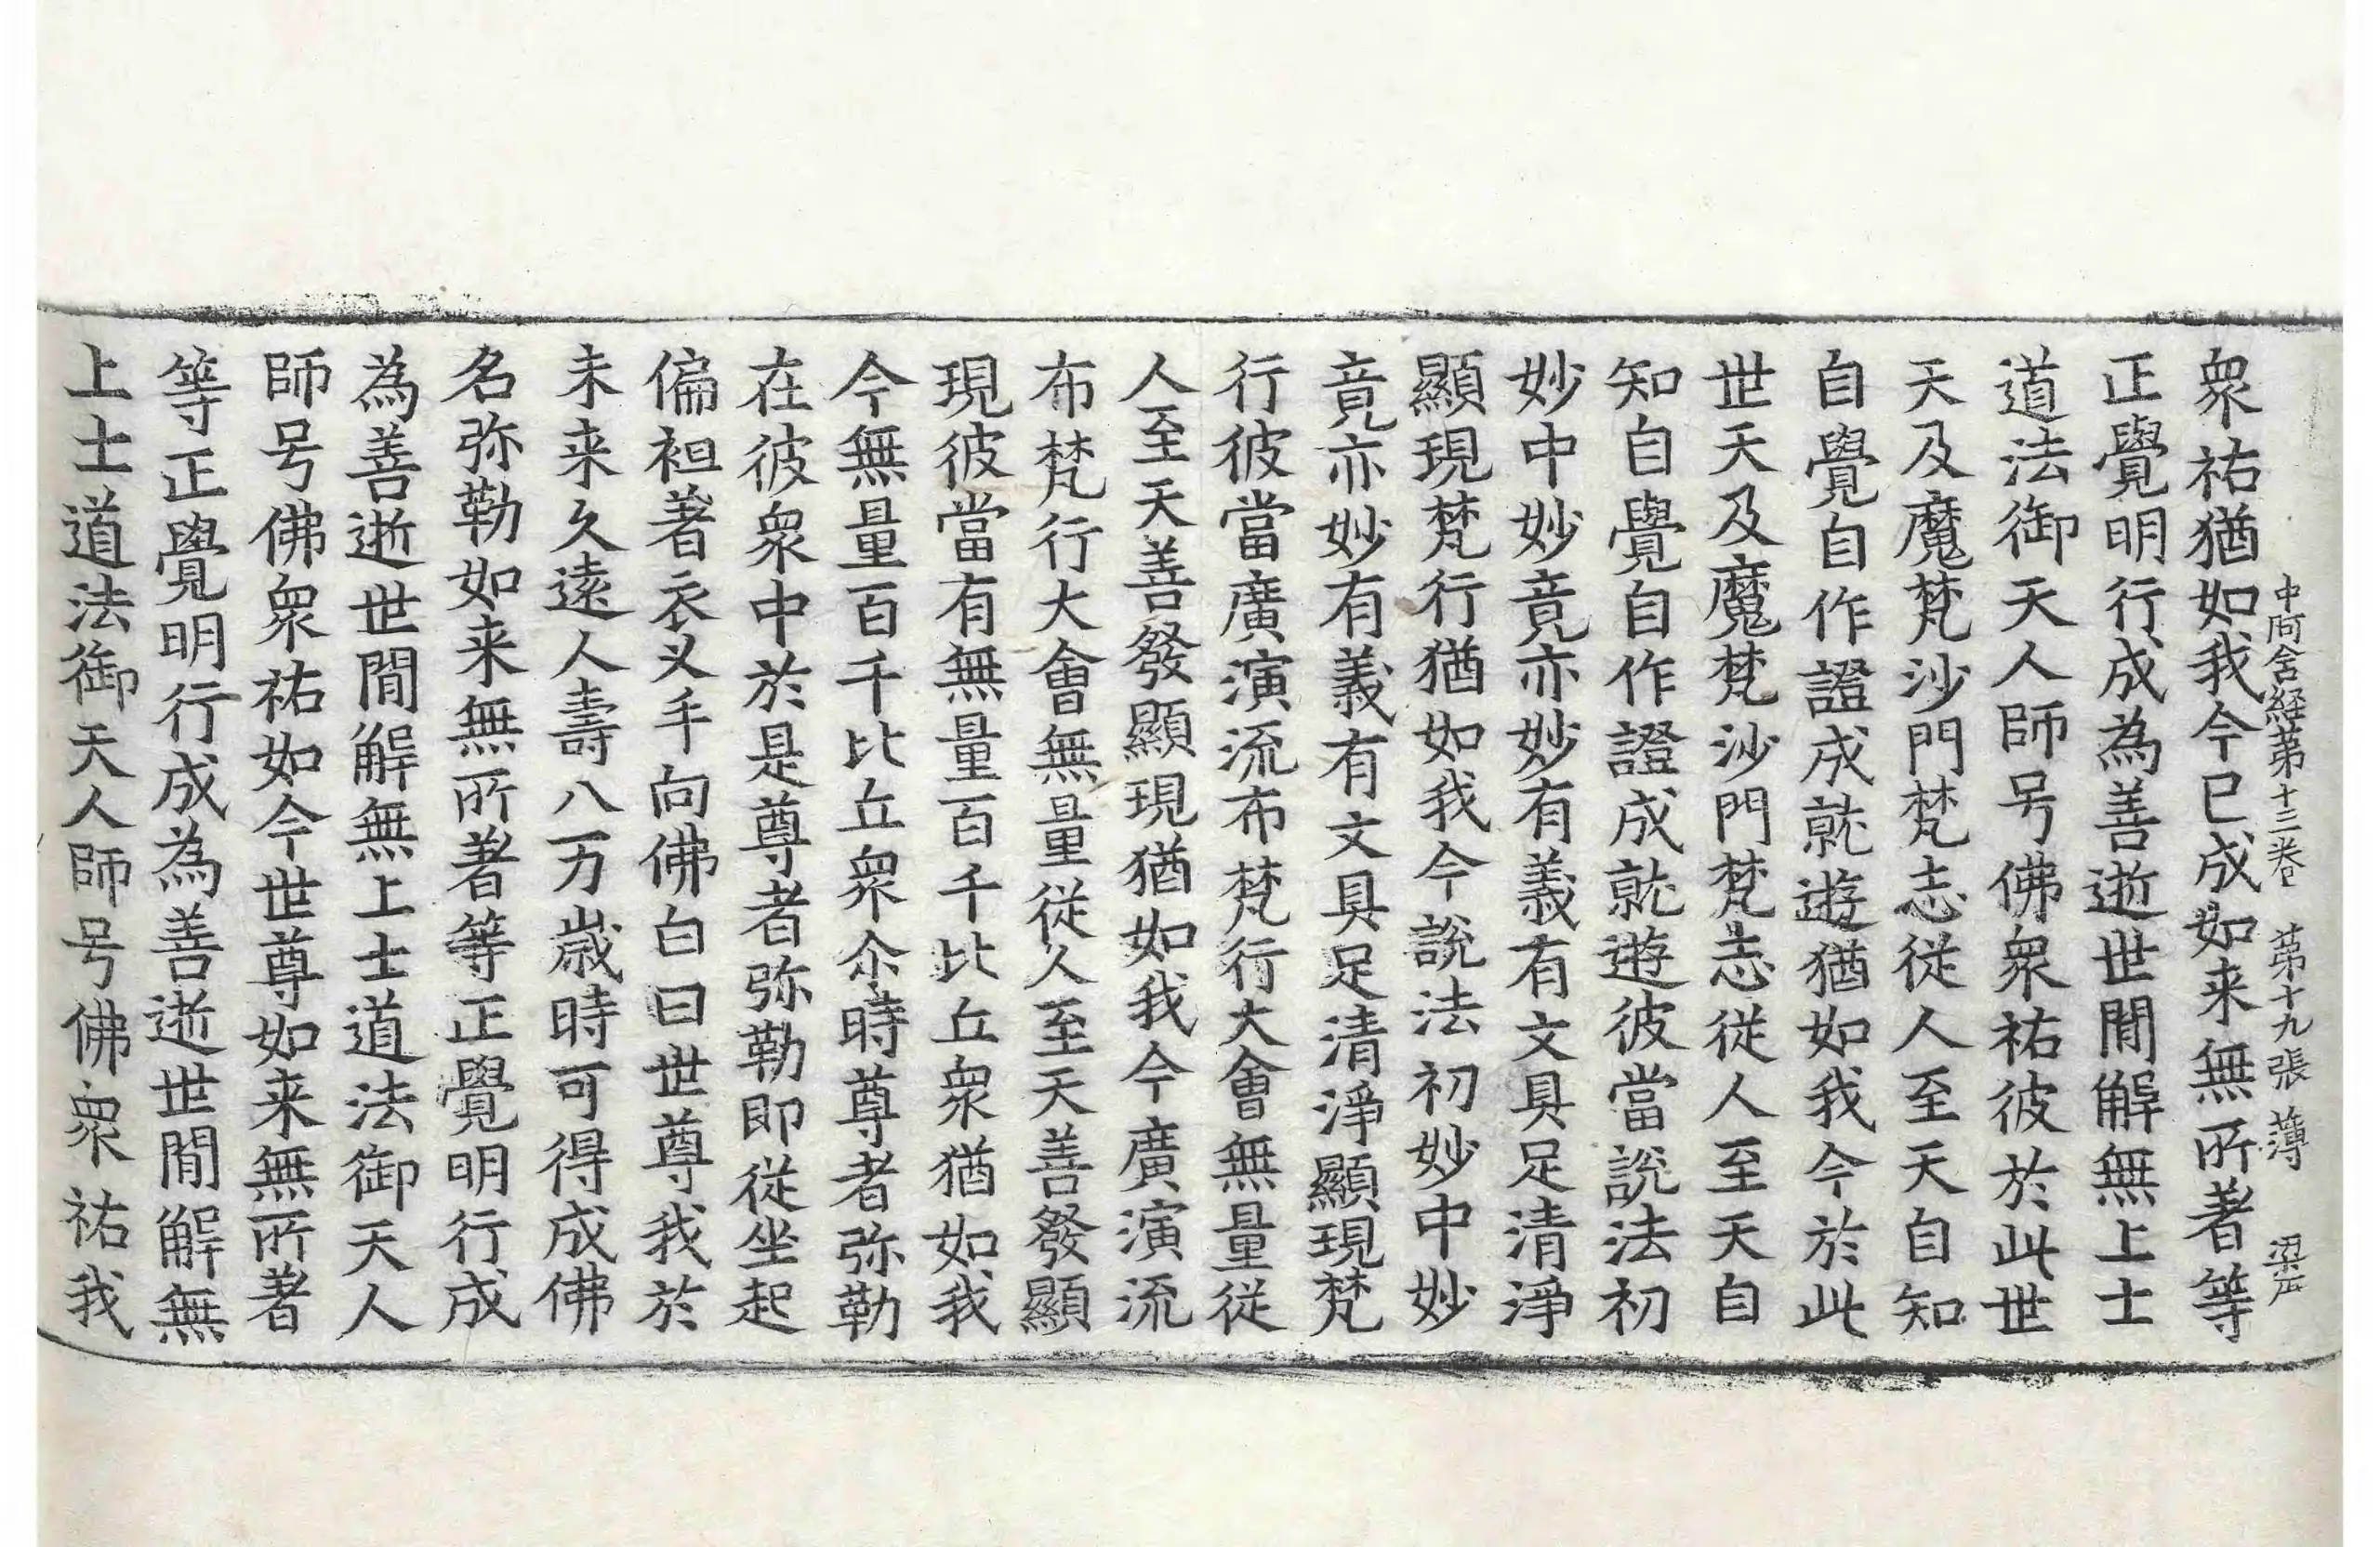 中阿含経第十三卷　第十九張　薄　梁㡳
衆祐猶如我今已成如来無所著等
正覺明行成為善逝世間解無上士
道法御天人師号佛衆祐彼於此世
天及魔梵沙門梵志從人至天自知
自覺自作證成就遊猶如我今於此
世天及魔梵沙門梵志從人至天自
知自覺自作證成就遊彼當說法初
妙中妙竟亦妙有義有文具足清淨
顯現梵行猶如我今說法初妙中妙
竟亦妙有義有文具足清淨顯現梵
行彼當廣演流布梵行大會無量從
人至天善發顯現猶如我今廣演流
布梵行大會無量從人至天善發顯
現彼當有無量百千比丘衆猶如我
今無量百千比丘衆尒時尊者弥勒
在彼衆中於是尊者弥勒即從坐起
偏袒著衣叉手向佛白曰世尊我於
未来久遠人壽八万歲時可得成佛
名弥勒如来無所著等正覺明行成
為善逝世間解無上士道法御天人
師号佛衆祐如今世尊如来無所著
等正覺明行成為善逝世間解無
上士道法御天人師号佛衆祐我